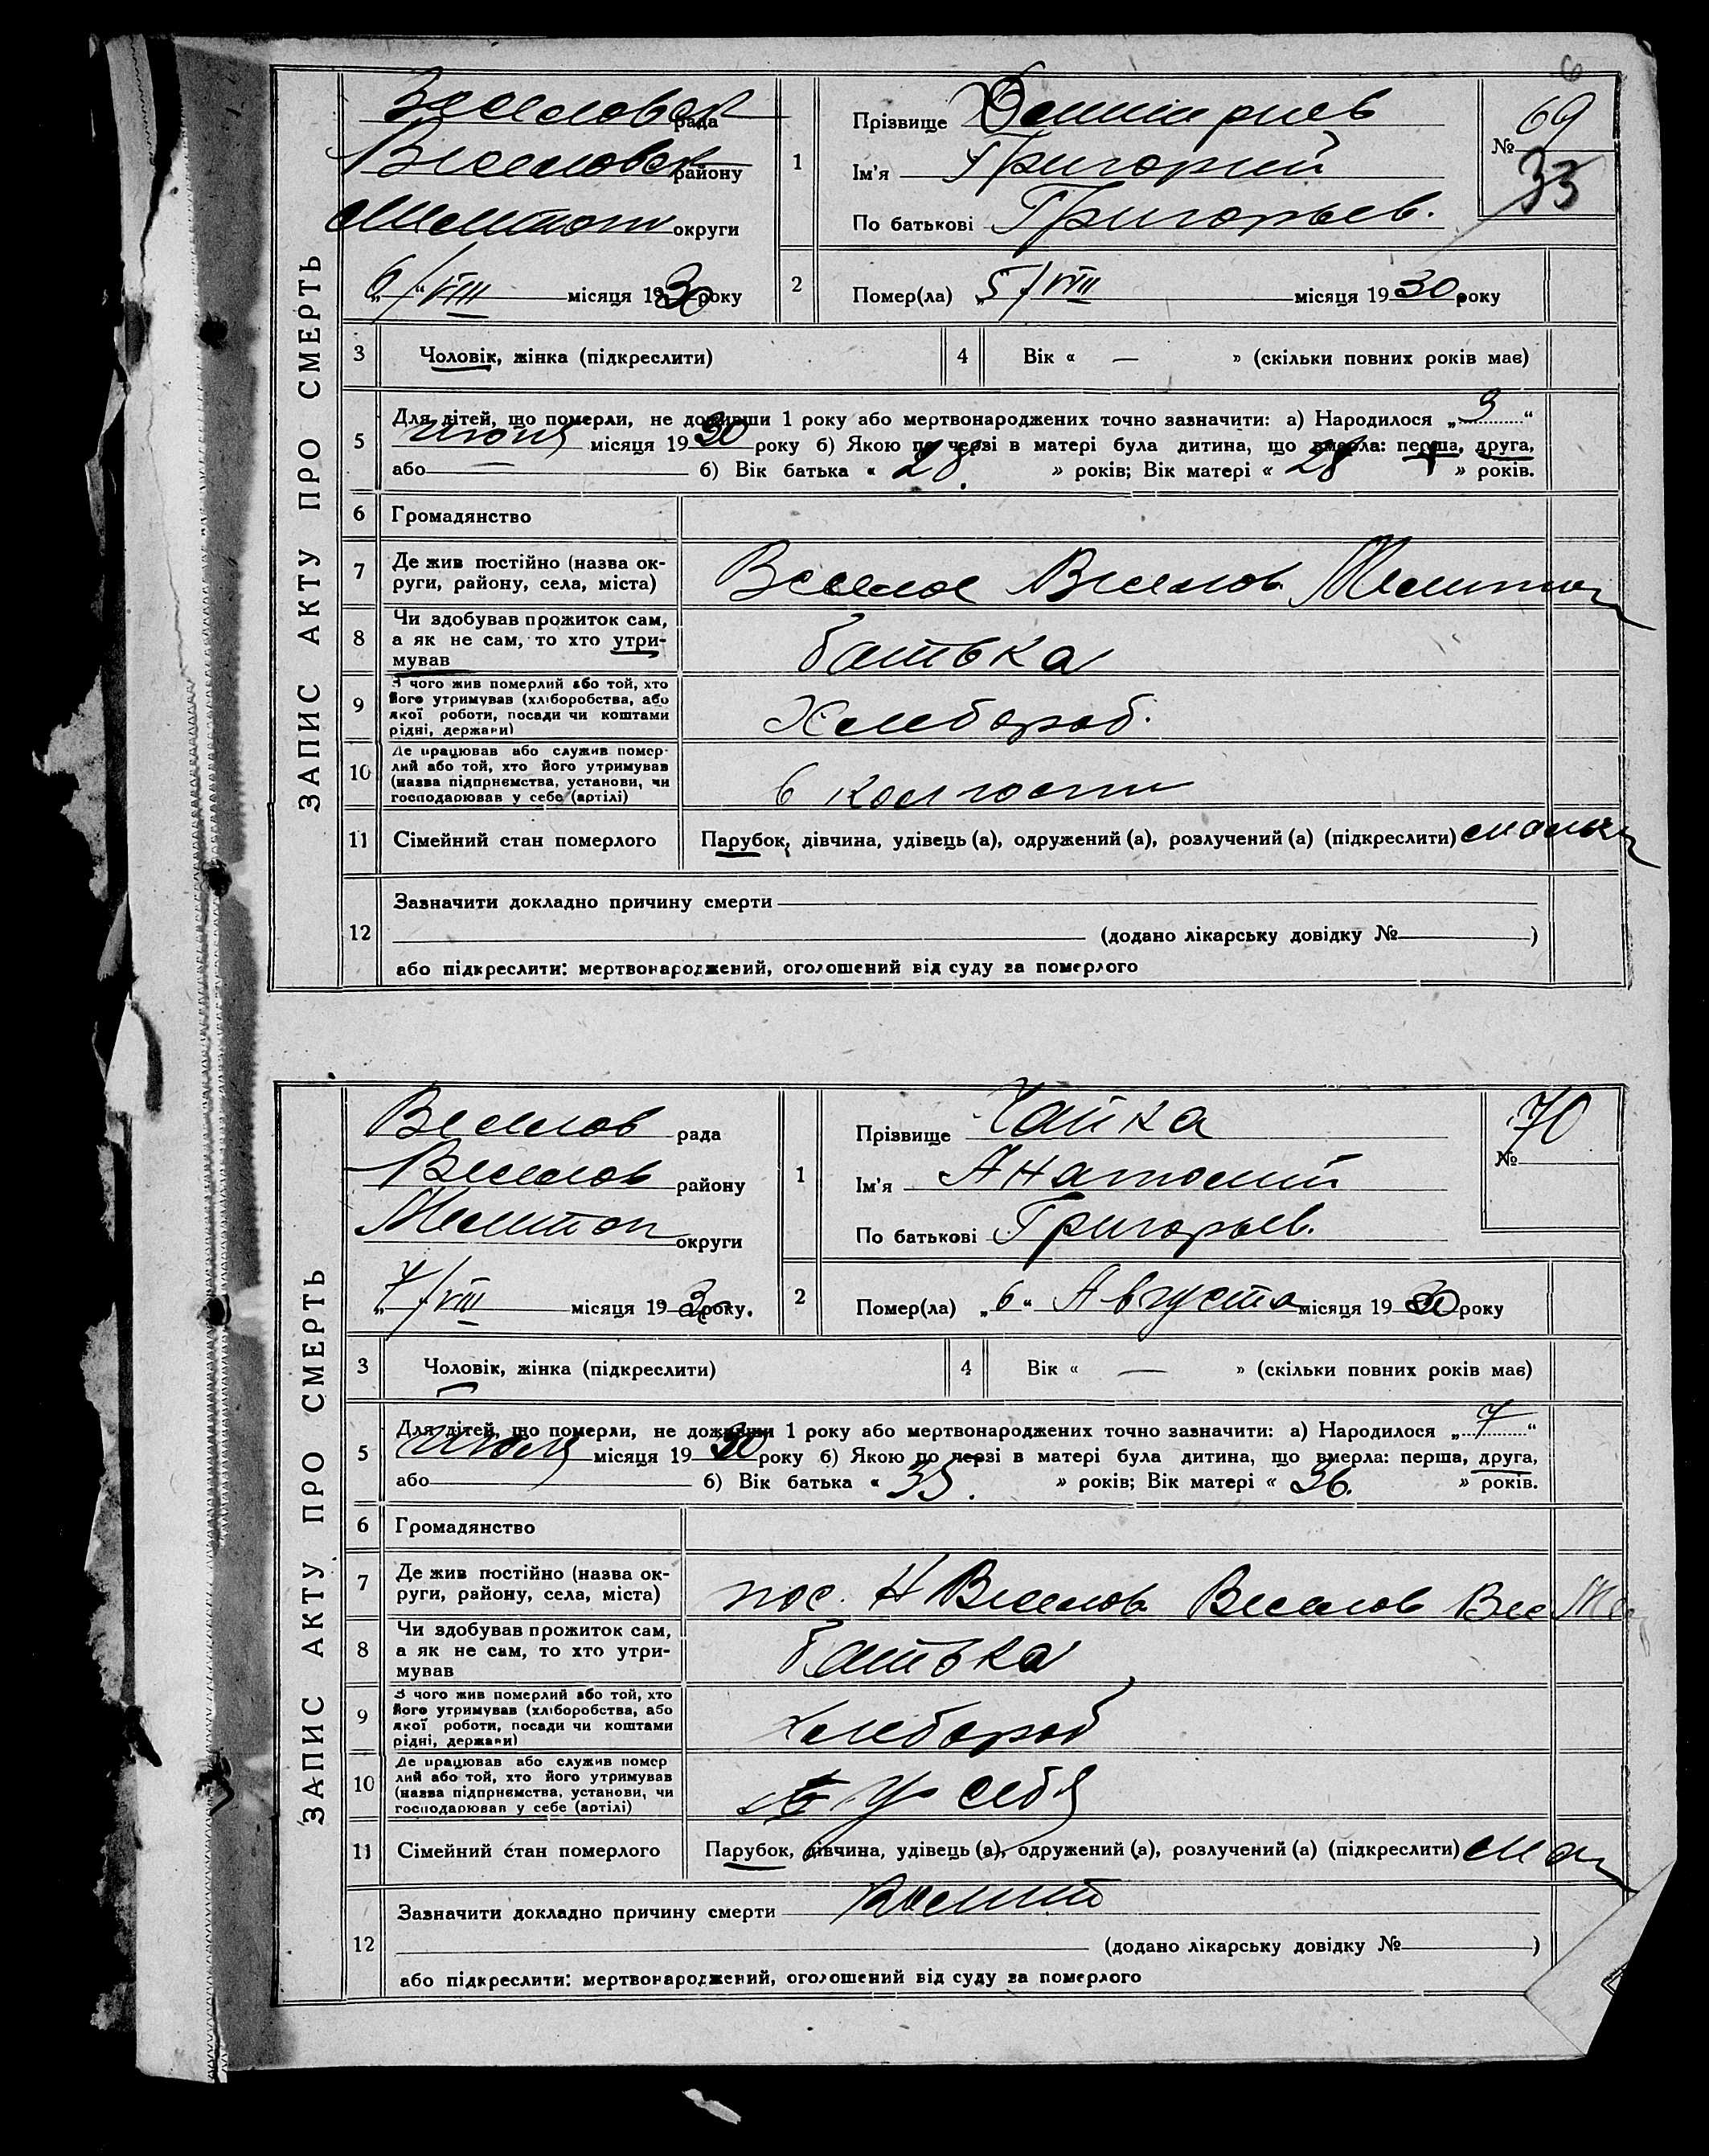 6
ЗАПИС АКТУ ПРО СМЕРТЬ
Веселовск рада
Веселовск району
Мелитоп округи
„6/“ VIII місяця 1930 року
1
Прізвище Дмитриев
Ім'я Григорий
По батькові Григорьев.
№ 69
33
2
Помер(ла) „5/“ VIII місяця 1930 року
3 Чоловік, жінка (підкреслити)
4 Вік « — » (скільки повних років має)
5 Для дітей, що померли, не доживши 1 року або мертвонароджених точно зазначити: а) Народилося „9“
Июня місяця 1930 року б) Якою по черзі в матері була дитина, що вмерла: перша, друга,
або — б) Вік батька « 28. » років; Вік матері « 28 » років.
6 Громадянство
7 Де жив постійно (назва ок-
руги, району, села, міста)
Веселое Веселов. Мелитоп
8 Чи здобував прожиток сам,
а як не сам, то хто утри-
мував
батька
9 З чого жив померлий або той, хто
його утримував (хліборобства, або
якої роботи, посади чи коштами
рідні, держави)
Хлебороб.
10 Де працював або служив помер-
лий або той, хто його утримував
(назва підприємства, установи, чи
господарював у себе (артілі)
в колгоспи
11 Сімейний стан померлого
Парубок, дівчина, удівець (а), одружений (а), розлучений (а) (підкреслити)
12 Зазначити докладно причину смерти
(додано лікарську довідку № )
або підкреслити: мертвонароджений, оголошений від суду за померлого
ЗАПИС АКТУ ПРО СМЕРТЬ
Веселов рада
Веселов району
Мелитоп округи
„7/“ VIII місяця 1930 року.
1
Прізвище Чайка
Ім'я Анатолий
По батькові Григорьев.
70
№
2
Помер(ла) „6“ Августа місяця 1930 року
3 Чоловік, жінка (підкреслити)
4 Вік « — » (скільки повних років має)
5 Для дітей, що померли, не доживши 1 року або мертвонароджених точно зазначити: а) Народилося „7“
Июля місяця 1930 року б) Якою по черзі в матері була дитина, що вмерла: перша, друга,
або б) Вік батька « 35. » років; Вік матері « 36. » років.
6 Громадянство
7 Де жив постійно (назва ок-
руги, району, села, міста)
пос. Н Веселов. Веселов Вес Ме
8 Чи здобував прожиток сам,
а як не сам, то хто утри-
мував
батька
9 З чого жив померлий або той, хто
його утримував (хліборобства, або
якої роботи, посади чи коштами
рідні, держави)
хлебороб
10 Де працював або служив помер
лий або той, хто його утримував
(назва підприємства, установи, чи
господарював у себе (артілі)
у себя
11 Сімейний стан померлого
Парубок, дівчина, удівець (а), одружений (а), розлучений (а) (підкреслити)
12 Зазначити докладно причину смерти
(додано лікарську довідку № )
або підкреслити: мертвонароджений, оголошений від суду за померлого